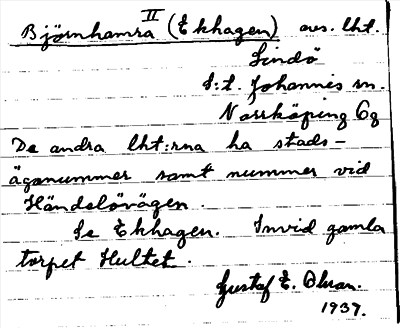 II
Björnhamra (Ekhagen) avs. lht.
Lindö
S:t. Johannis sn.
Norrköping Ög
De andra lht:rna ha stads-
ägonummer samt nummer vid
Händelövägen.
Se Ekhagen. Invid gamla
torpet Hultet.
Gustaf E. Olsson.
1937.